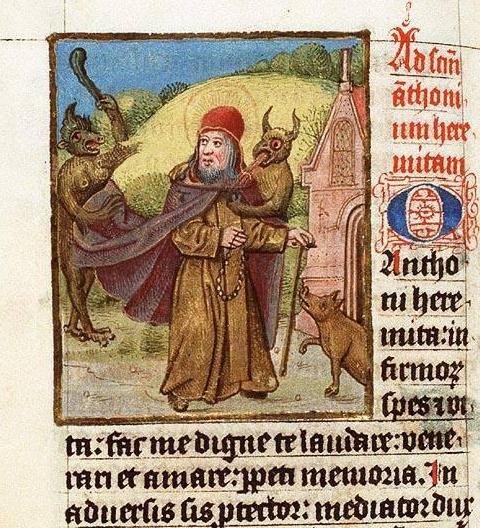 Ad scm̄
āthoni
um here
mitam
O
Antho
ni here-
mita: in
firmoꝝ
spes ⁊ vi
ta: fac me digne te laudare: vene-
rari et amare: ꝓpeti memoria. In
aduersis sis ꝓtector: mediator dux